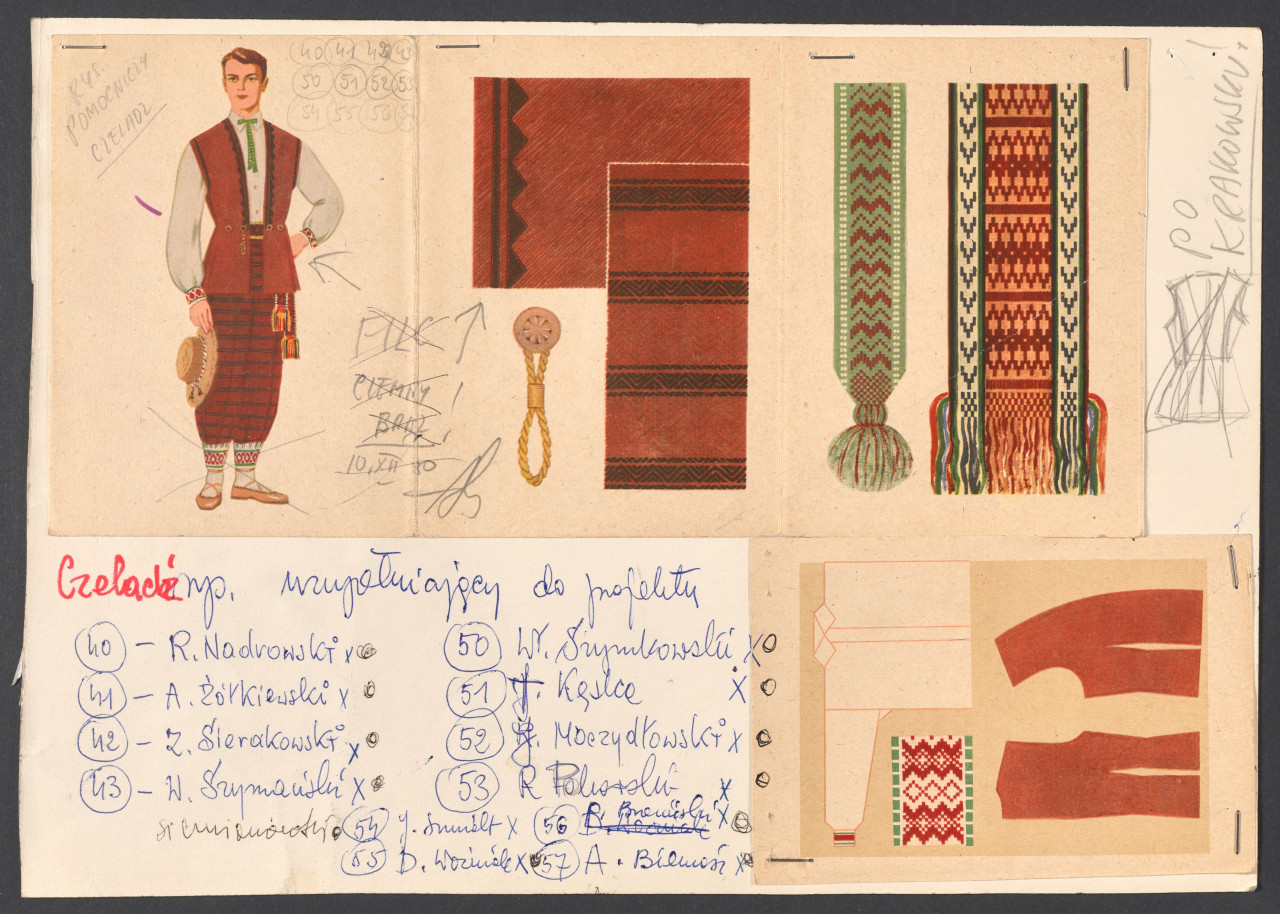 RYS.
POMOCNICZY
CZELADŹ
40 41 42 43
50 51 52 53
54 55 56
PO
KRAKOWSKU!
FILC
CIEMNY
BRĄZ
10.XII 80
Czeladź np. uzupełniający do projektu
40 – R. Nadrowski x
41 – A. Żółkiewski x
42 – Z. Sierakowski x
43 – W. Szymański x
siemianowski
50 Wł. Szymkowski x
51 J. Kęska x
52 Moczydłowski x
53 R x
54 J. Smuált x
55 D. Woźniak x
56 x
57 A. x